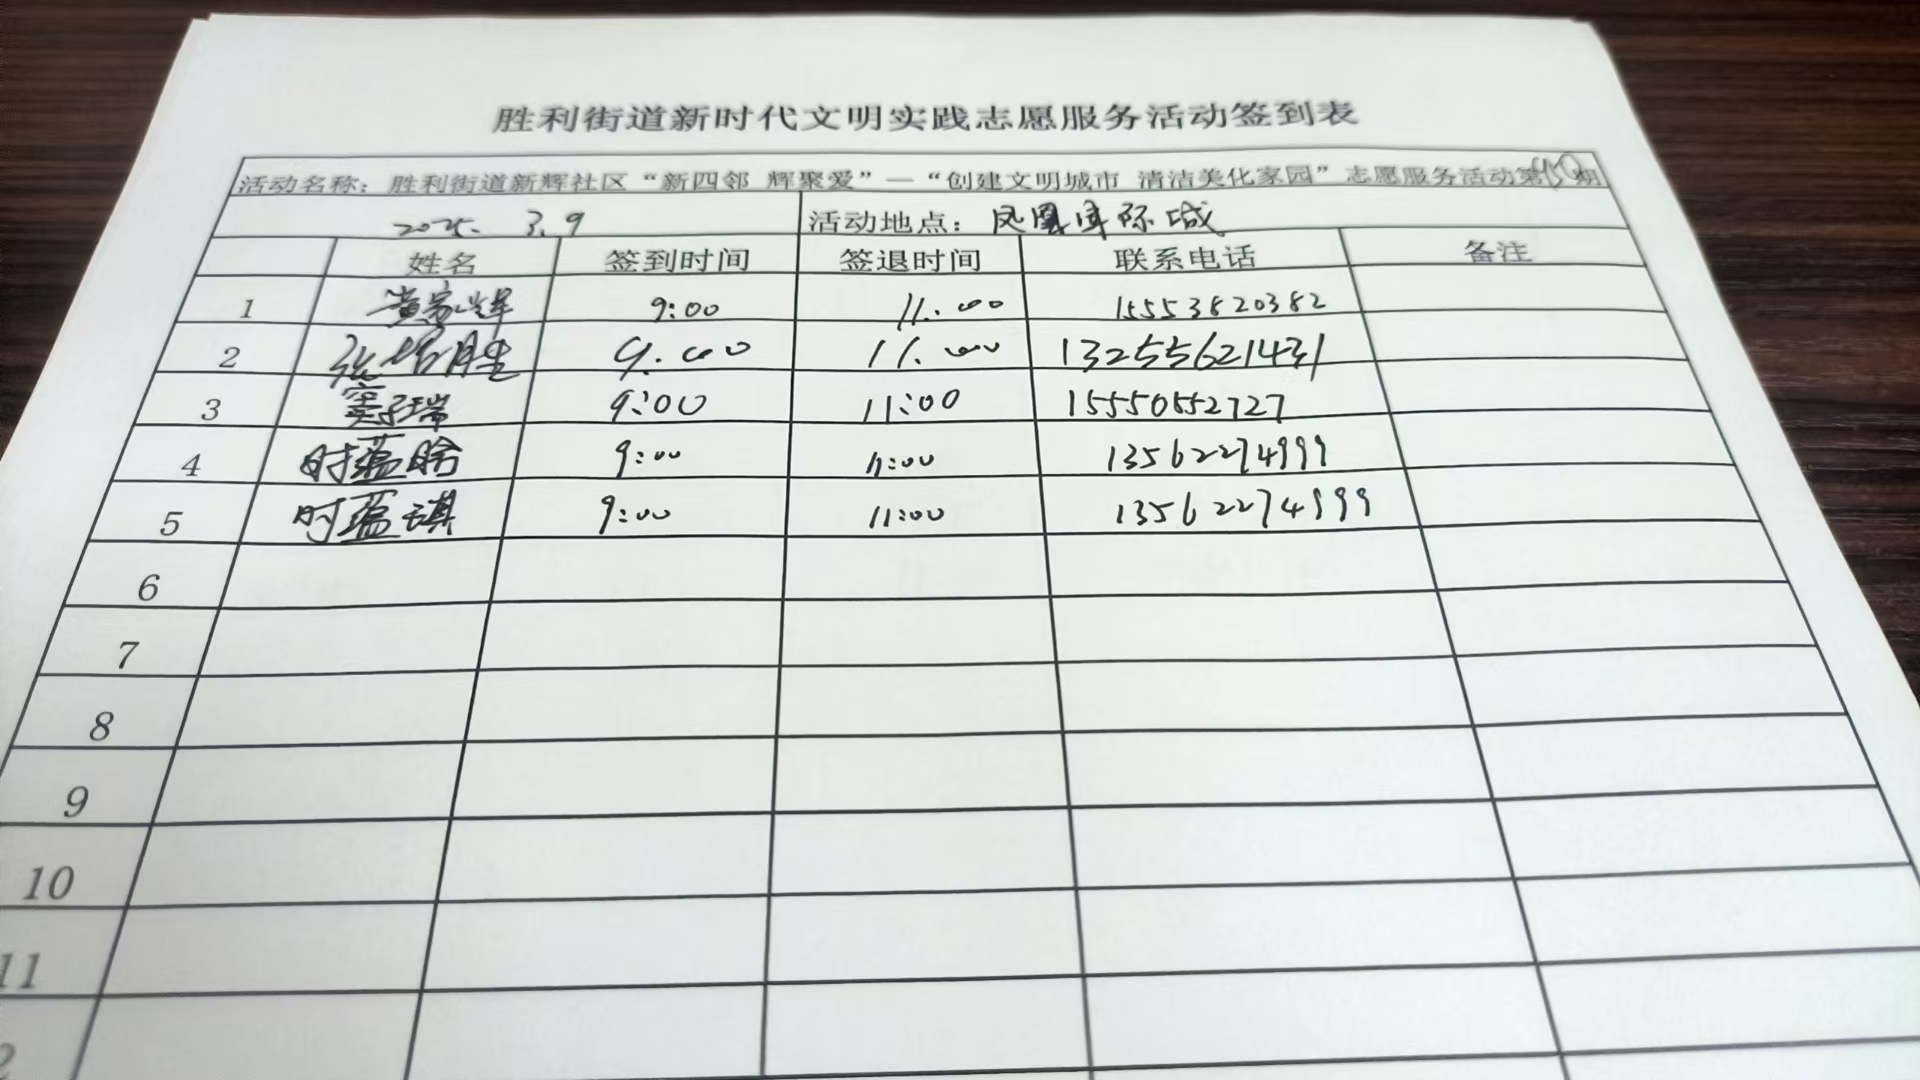 胜利街道新时代文明实践志愿服务活动签到表
活动名称：胜利街道新辉社区“新四邻 辉聚爱”—“创建文明城市 清洁美化家园”志愿服务活动第 期
2025. 3.9 活动地点：凤凰国际城
姓名 签到时间 签退时间 联系电话 备注
1 黄家辉 9:00 11:00 15553820382
2 张培胜 9:00 11:00 13255621431
3 窦子瑞 9:00 11:00 15550552727
4 时蕴晗 9:00 11:00 13562274999
5 时蕴琪 9:00 11:00 13562274999
6
7
8
9
10
11
2